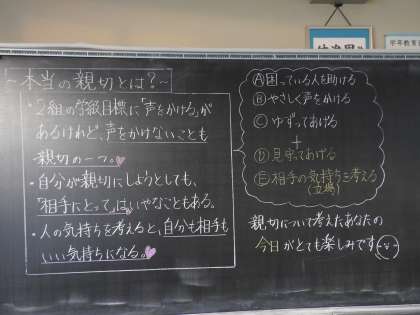 ~本当の親切とは?~
・2組の学級目標に「声をかける」が
あるけれど、声をかけないことも
親切の一つ。
・自分が親切にしようとしても、
「相手にとって」はいやなこともある。
・人の気持ちを考えると、自分も相手も
いい気持ちになる。
Ⓐ困っている人を助ける
Ⓑやさしく声をかける
Ⓒゆずってあげる
+
Ⓓ見守ってあげる
Ⓔ相手の気持ちを考える
(立場)
親切について考えたあなたの
今日がとても楽しみです